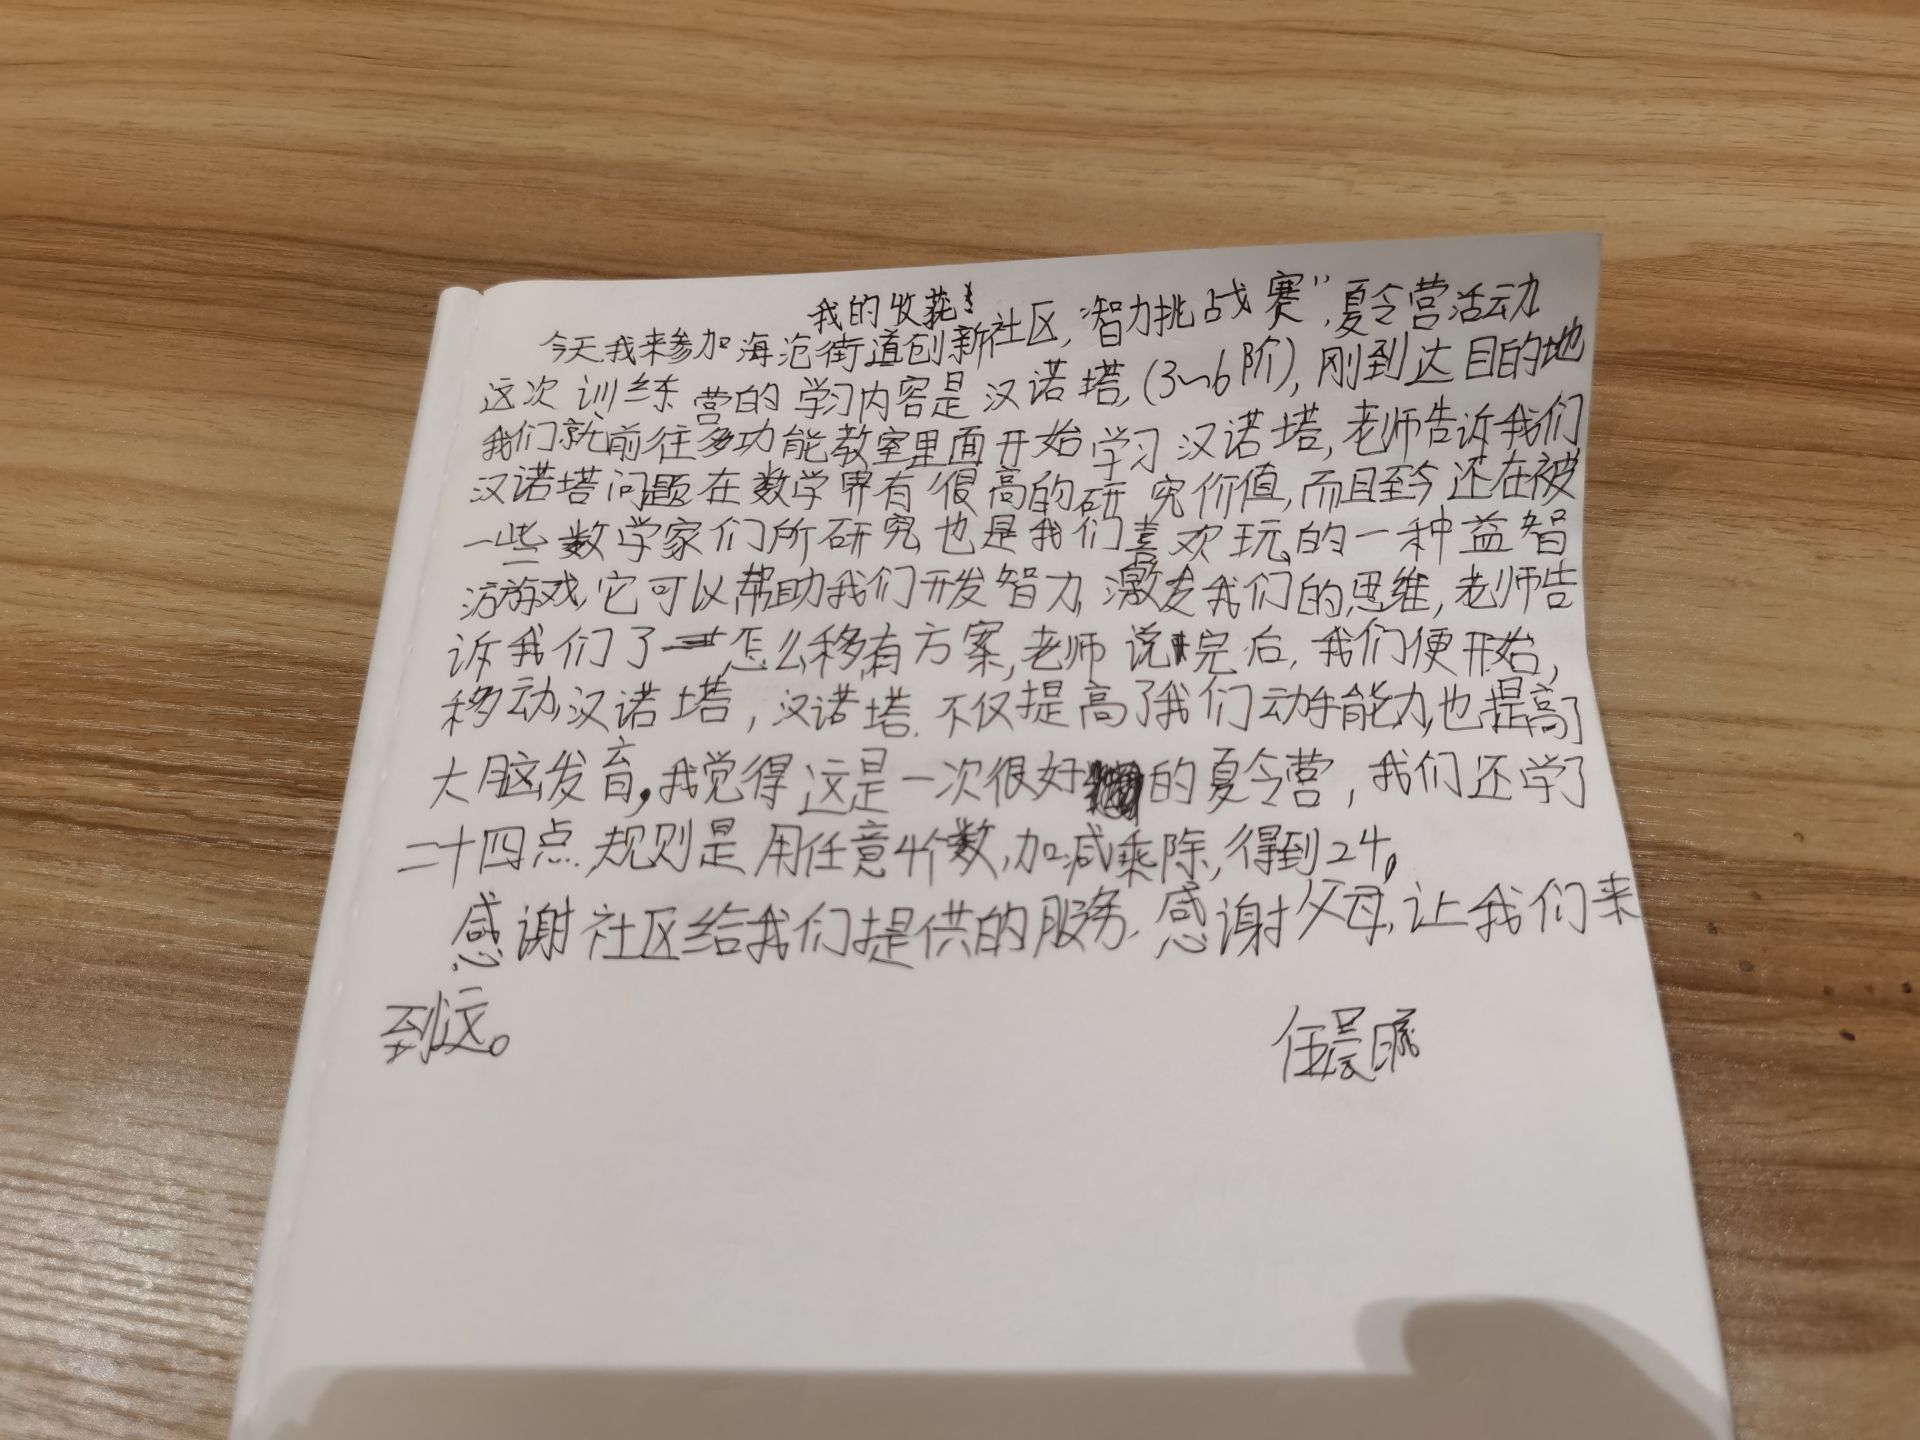 我的收获!
今天我来参加海沧街道创新社区,“智力挑战赛”,夏令营活动
这次训练营的学习内容是汉诺塔,(3~6阶),刚到达目的地
我们就前往多功能教室里面开始学习汉诺塔,老师告诉我们
汉诺塔问题在数学界有很高的研究价值,而且至今还在被
一些数学家们所研究,也是我们喜欢玩的一种益智
游戏,它可以帮助我们开发智力,激发我们的思维,老师告
诉我们了怎么移,有方案,老师说完后,我们便开始,
移动汉诺塔,汉诺塔.不仅提高了我们动手能力,也提高了
大脑发育,我觉得这是一次很好的夏令营,我们还学了
二十四点.规则是用任意4个数,加减乘除,得到24,
感谢社区给我们提供的服务.感谢父母,让我们来
到这。
任晨